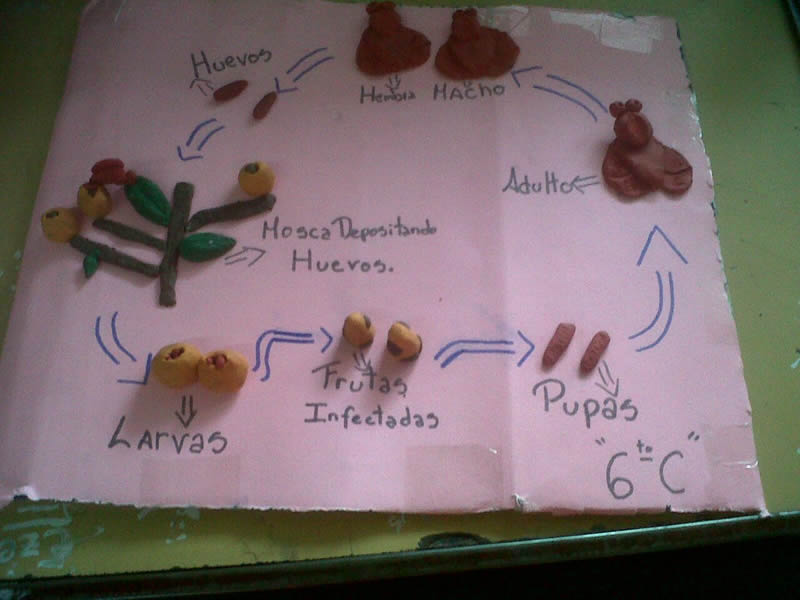 Huevos
Hembra MAcho
Adulto
Mosca Depositando
Huevos.
Larvas
Frutas
Infectadas
Pupas
"6to C"